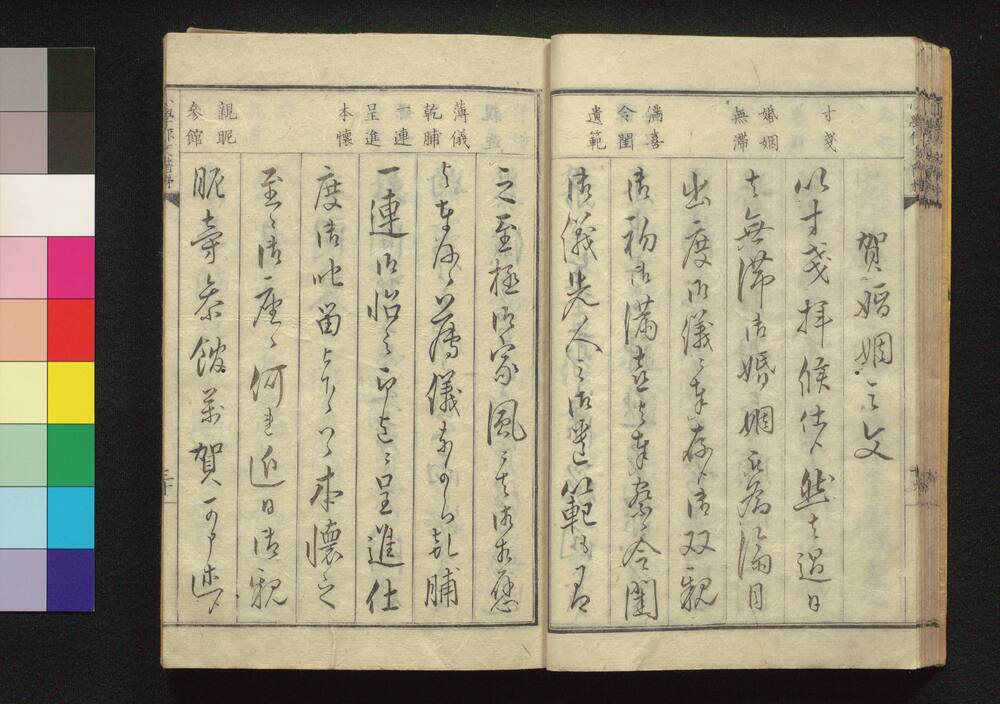 賀婚姻之文
寸戔
以寸戔拝候仕候然者過日
婚姻
無滞
者無滞御婚姻被為済目
出度御儀ニ奉存候御双親
満喜
令閨
御初御満喜与奉察候令閨
遺範
御儀先人之御遺範も有
之至極御家風ニ
薄儀
乾脯
与奉存候薄儀ながら乾脯
一連
呈進
一連御怡之印迄ニ呈進仕
本懐
度御叱留被下候ハヽ本懐之
至ニ御座候何れ近日御親
親昵
參館
昵旁参館万賀可申述候